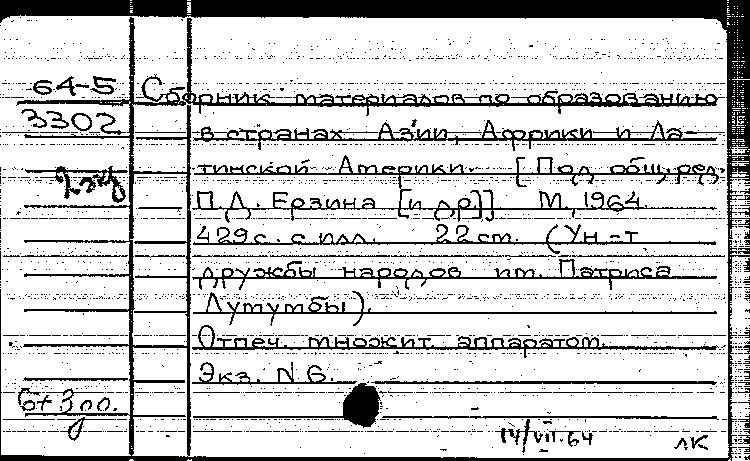 64-5
3302
2 экз
Сборник материалов по образованию
в странах Азии, Африки и Ла-
тинской Америки. [Под общ. ред.
П.Д. Ерзина [и др]] М., 1964.
429 с. с илл. 22 cm. (Ун-т
дружбы народов им. Патриса
Лумумбы).
Отпеч. множит. аппаратом.
Экз. N 6.
14/VII-64
ЛК